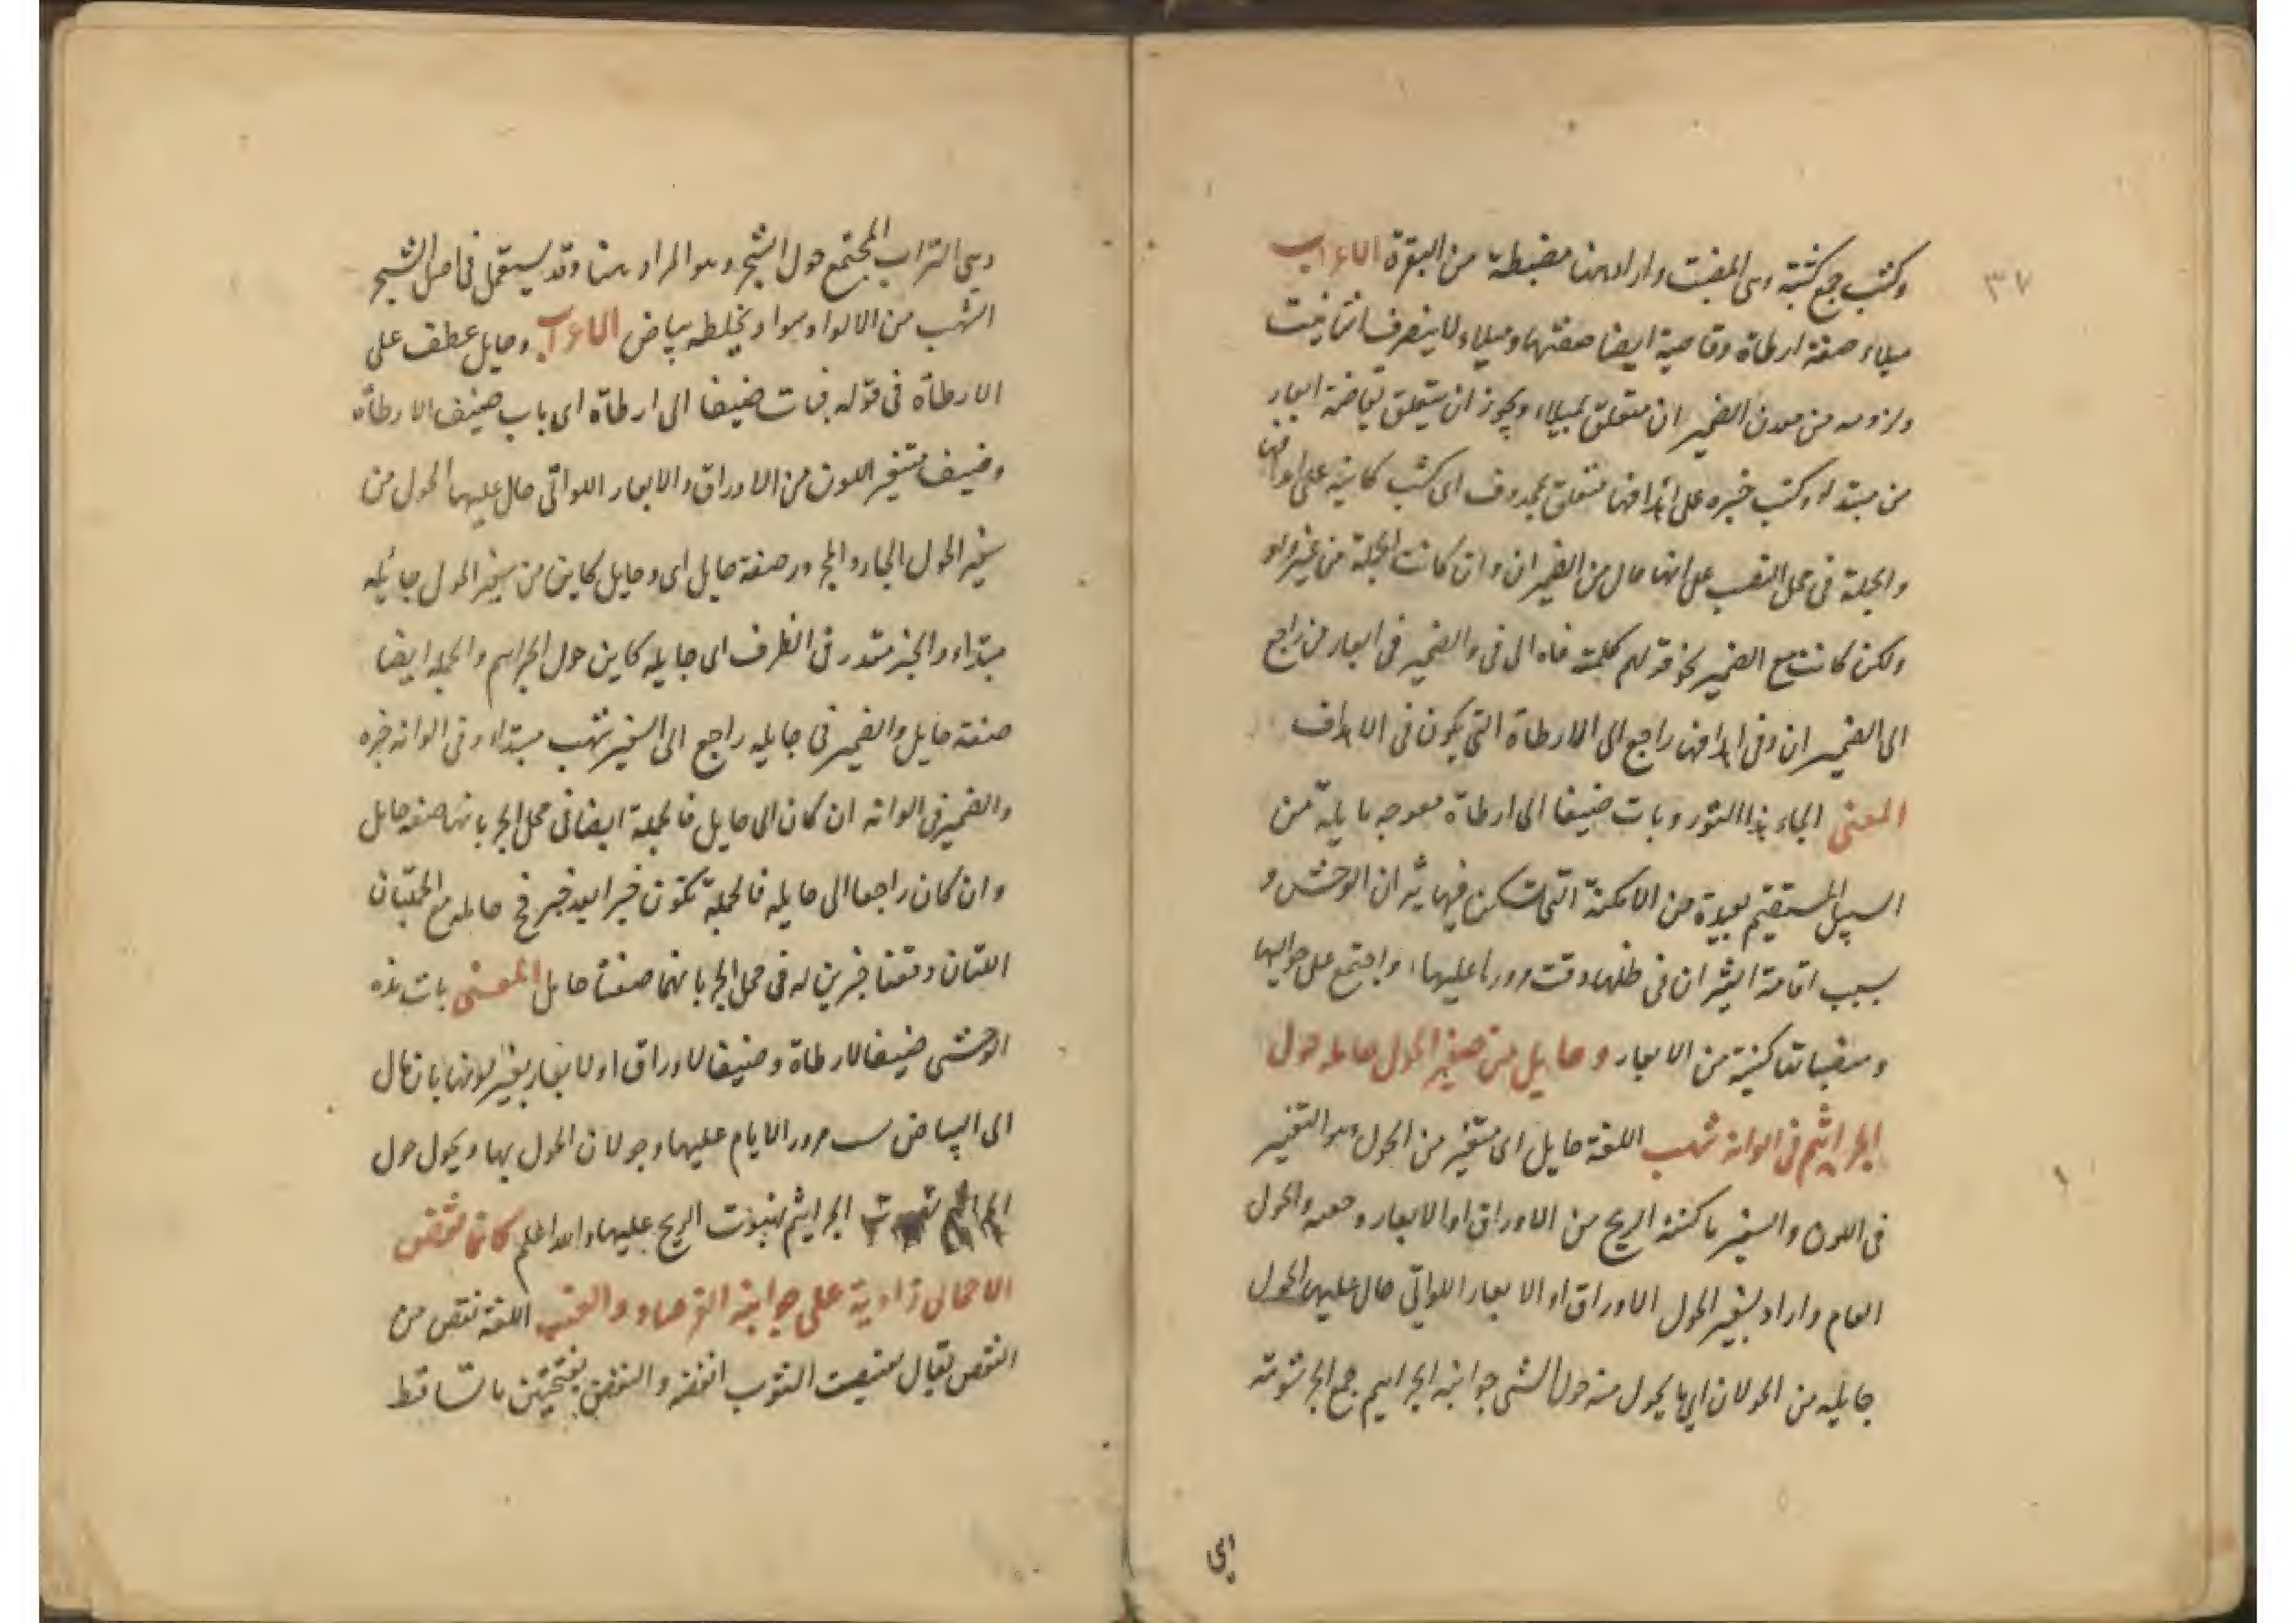 ٣٧
وكثب جمع كثبة وهى وارادبهنا من البقرة الاعراب
ميلاء صفة ارطاة وقاصية ايضا صفتها وميلاء لا ينصرف التانيث
ولزومه من معدن الضيران متعلق بميلاء ويجوز ان يتعلق بقاصية ابعار
من مبتداء وكثب خبره على اهدافها متعلق بمحذوف اى كثب كاينة على اهدافها
والجملة فى محل النصب على انها حال من الضيران وان كانت الجملة من غير واو
ولكن كانت مع الضمير نحو قولهم كلمته فاه الى فى والضمير فى ابعارهن راجع
الى الضيران وفى اهدافها راجع الى الارطاة التى يكون فى الاهداف
المعنى الجاء هذا الثور وبات ضيفا الى ارطاة معوجه مايلة من
السبيل المستقيم بعيدة من الامكنة التى تسكن فيها ثيران الوحش و
بسبب اقامة الثيران فى ظلها وقت ورودها عليها، واجتمع على حواليها
من الابعار وحايل من صفير الحول حايله حول
الجراثيم فى الوانه شهب اللغة حايل اى متغير من الحول وهو التغير
فى اللون والسفير ما كنته الريح من الاوراق او الابعار وجمعه والحول
العام واراد بسفير الحول الاوراق او الابعار اللواتى حال عليها الحول
جايله من الجولان اى ما يجول منه حول الشى جوانبه الجراثيم جمع الجرثومة
وهى التراب المجتمع حول الشجر وهو المراد هنا وقد يستعمل فى اصل الشجر
الشهب من الالوا وسواد يخلطه بياض الاعراب وحايل عطف على
الارطاة فى قوله فبات ضيفا الى ارطاة اى بات ضيف الارطاة
وضيف متغير اللون من الاوراق والابعار اللواتى حال عليها الحول من
سفير الحول الجار والمجرور صفة حايل اى وحايل كاين من سفير الحول جايله
مبتداء والخبر مقدر فى الظرف اى جايله كاين حول الجراثيم والجملة ايضا
صفة حايل والضمير فى جايله راجع الى السفير شهب مبتداء وفى الوانه خبره
والضمير فى الوانه ان كان الى حايل فالجملة ايضا فى محل الجر بانها صفة حايل
وان كان راجعا الى جايله فالجملة تكون خبرا بعد خبر مع الجملتان
اللتان وقعتا خبرين له فى محل الجر بانهما صفتا حايل المعنى بات هذه
الوحشى ضيفا لارطاة وضيفا لاوراق او لابعار تغير لونها بان مال
الى البياض مرور الايام عليها وجولان الحول بها ويجول حول
الجراثيم الجراثيم بهبوب الريح عليها والله اعلم كانما نفض
الاحمال ذاوية على جوانبه الفرصاد والعنب اللغة نفض من
النفض يقال نفضت الثوب انفضه والنفض بفتحتين ما تساقط